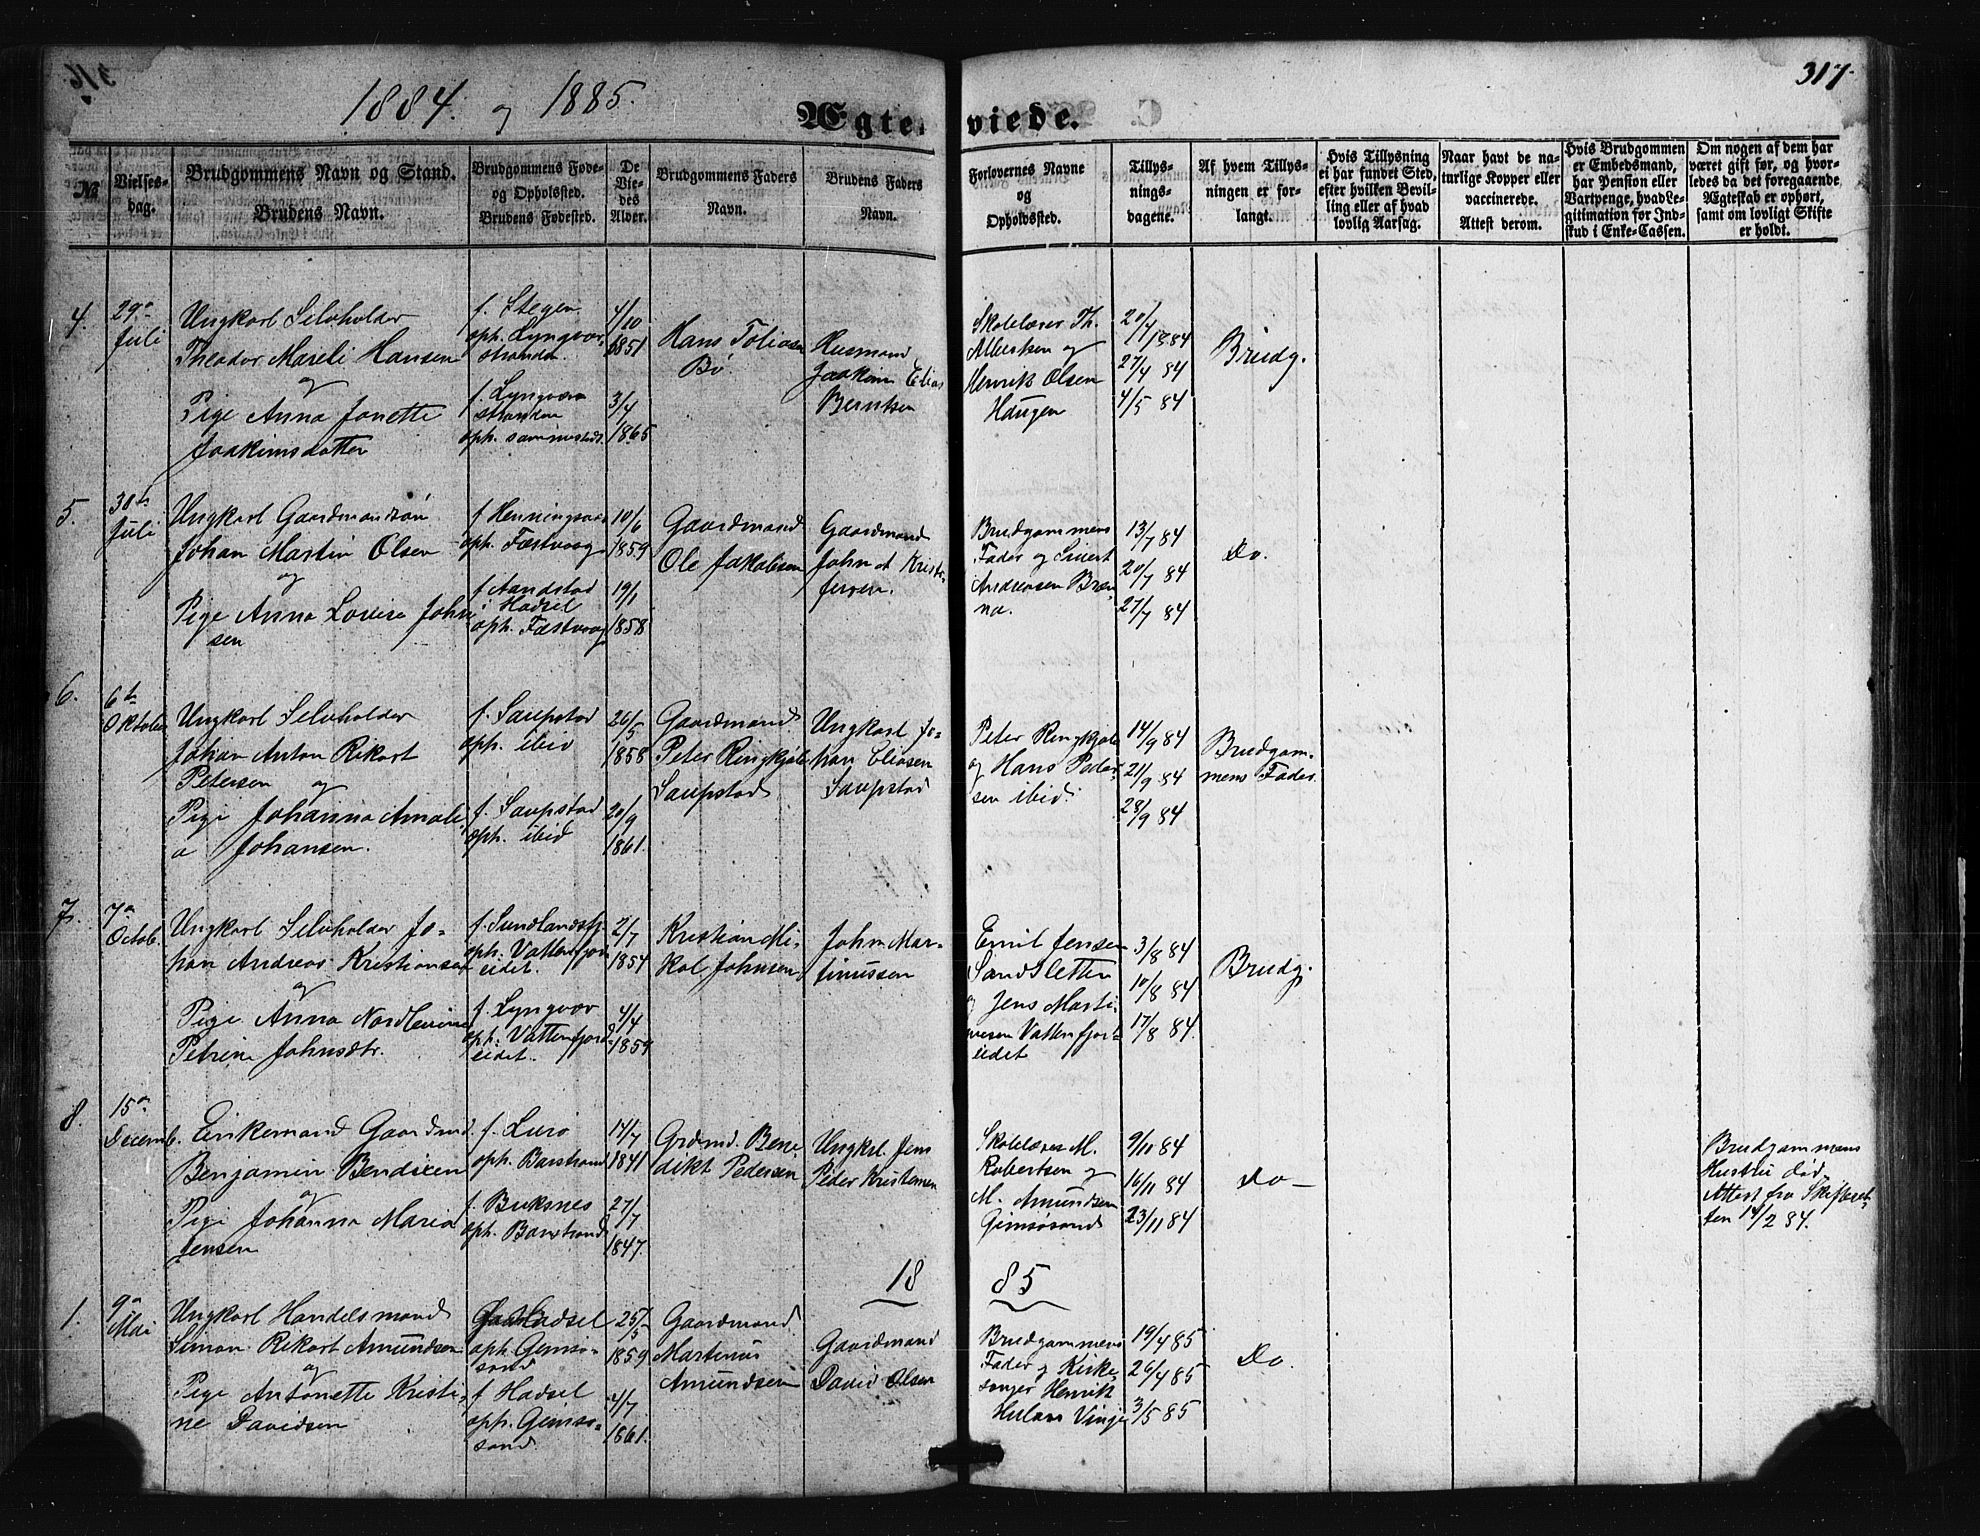 1884. og 1885.
317.
Ægteviede.
№
Vielses-
dag.
Brudgommens Navn og Stand.
Brudens Navn.
Brudgommens Føde-
og Opholdssted.
Brudens Fødested.
De
Vie-
des
Alder.
Brudgommens Faders
Navn.
Brudens Faders
Navn.
Forlovernes Navne
og
Opholdssted.
Tillys-
nings-
dagene.
Af hvem Tillys-
ningen er for-
langt.
Hvis Tillysning
ei har fundet Sted,
efter hvilken Bevil-
ling eller af hvad
lovlig Aarsag.
Naar havt de na-
turlige Kopper eller
vaccinerede.
Attest derom.
Hvis Brudgommen
er Embedsmand,
har Pension eller
Vartpenge, hvad Le-
gitimation for Ind-
skud i Enke-Cassen.
Om nogen af dem har
været gift før, og hvor-
ledes da det foregaaende
Ægteskab er ophørt,
samt om lovligt Skifte
er holdt.
4.
29de
Juli
Ungkarl Selvholder
Theodor Mareli Hansen
og
Pige Anna Jonette
Joakimsdatter
f. Stegen
oph. Lyngvær
stranden.
f. Lyngvær
stranden
oph. sammesteds.
4/10
1851
3/4
1865
Hans Tobiasen
Bö.
Husmand
Joakim Elias
Berntsen
Skolelærer Th.
Albertsen og
Henrik Olsen
Haugen
20/4 1884
27/4 84
4/5 84
Brudg.
5.
30te
Juli
Ungkarl Gaardmandsön
Johan Martin Olsen
og
Pige Anna Lovise John
sen
f. Henningsvær
oph. Fæstvaag
f. Sandstad
i Hadsel
oph. Fæstvaag
10/6
1859
19/1
1858
Gaardmand
Ole Jakobsen
Gaardmand
John A Krist-
fersen.
Brudgommens
Fader og Sivert
Andreasen Bræn-
na.
13/7 84
20/7 84
27/7 84
Do.
6.
6te
Oktober
Ungkarl Selvholder
Johan Anton Rikart
Petersen og
Pige Johanna Amali-
a Johansen.
f. Saupstad
oph. ibid
f. Saupstad
oph. ibid
26/5
1858
20/9
1861.
Gaardmand
Peter Ringkjøb
Saupstad
Ungkarl Jo-
han Eliasen
Saupstad
Peter Ringkjøb
og Hans Peder-
sen ibid.
14/9 84
21/9 84
28/9 84
Brudgom-
mens Fader.
7.
7de
Octob.
Ungkarl Selvholder Jo-
han Andreas Kristiansen
og
Pige Anna Nordlevine
Petrine Johnsdtr.
f. Sundlandsfj.
oph. Vattenfjord
eidet.
f. Lyngvær
oph. Vattenfjord-
eidet.
2/7
1854
4/4
1859
Kristian Mi-
kal Johnsen
John Mar-
tinussen
Emil Jensen
Sandsletten
og Jens Marti-
nusen Vattenfjord-
eidet
3/8 84
10/8 84
17/8 84.
Brudg.
8.
15de
Decemb.
Enkemand Gaardmd.
Benjamin Bendixen
og
Pige Johanna Maria
Jensen
f. Lurö
oph. Barstrand
f. Buksnes
oph. Barstrand
17/7
1841
27/7
1847.
Grdmd. Bene
dikt Pedersen
Ungkrl. Jens
Peder Kristensen
Skolelærer M.
Robertsen og
M. Amundsen
Gimsösand
9/11 84
16/11 84
23/11 84
Do—
Brudgommens
Hustru död,
Attest fra Skifteret-
ten 14/2 84.
1885
1.
9de
Mai
Ungkarl Handelsmand
Simon Rikart Amundsen
og
Pige Antonette Kristi-
ne Davidsen
Hadsel
oph. Gimsö-
sand
f. Hadsel
oph. Gimsö-
sand.
25/5
1859
4/7
1861.
Gaardmand
Martinus
Amundsen
Gaardmand
David Olsen
Brudgommens
Fader og Kirke-
sanger Henrik
Vinje
19/4 85
26/4 85
3/5 85
Do.